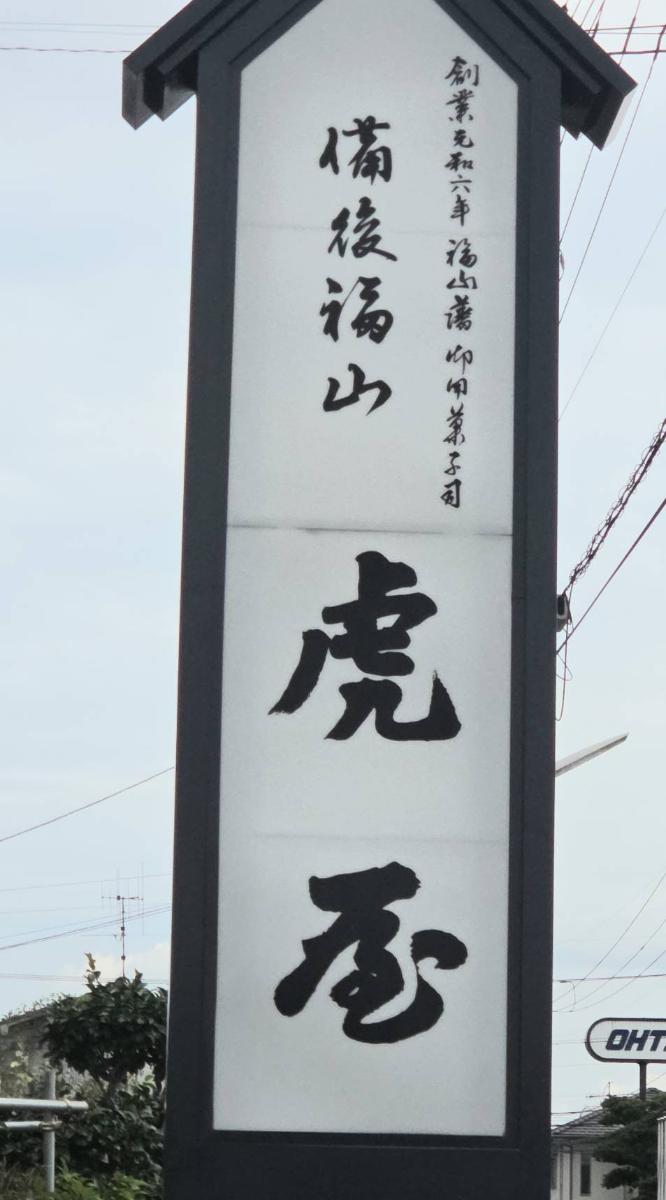 創業元和六年 福山藩 御用菓子司
備後福山
虎屋
OHT